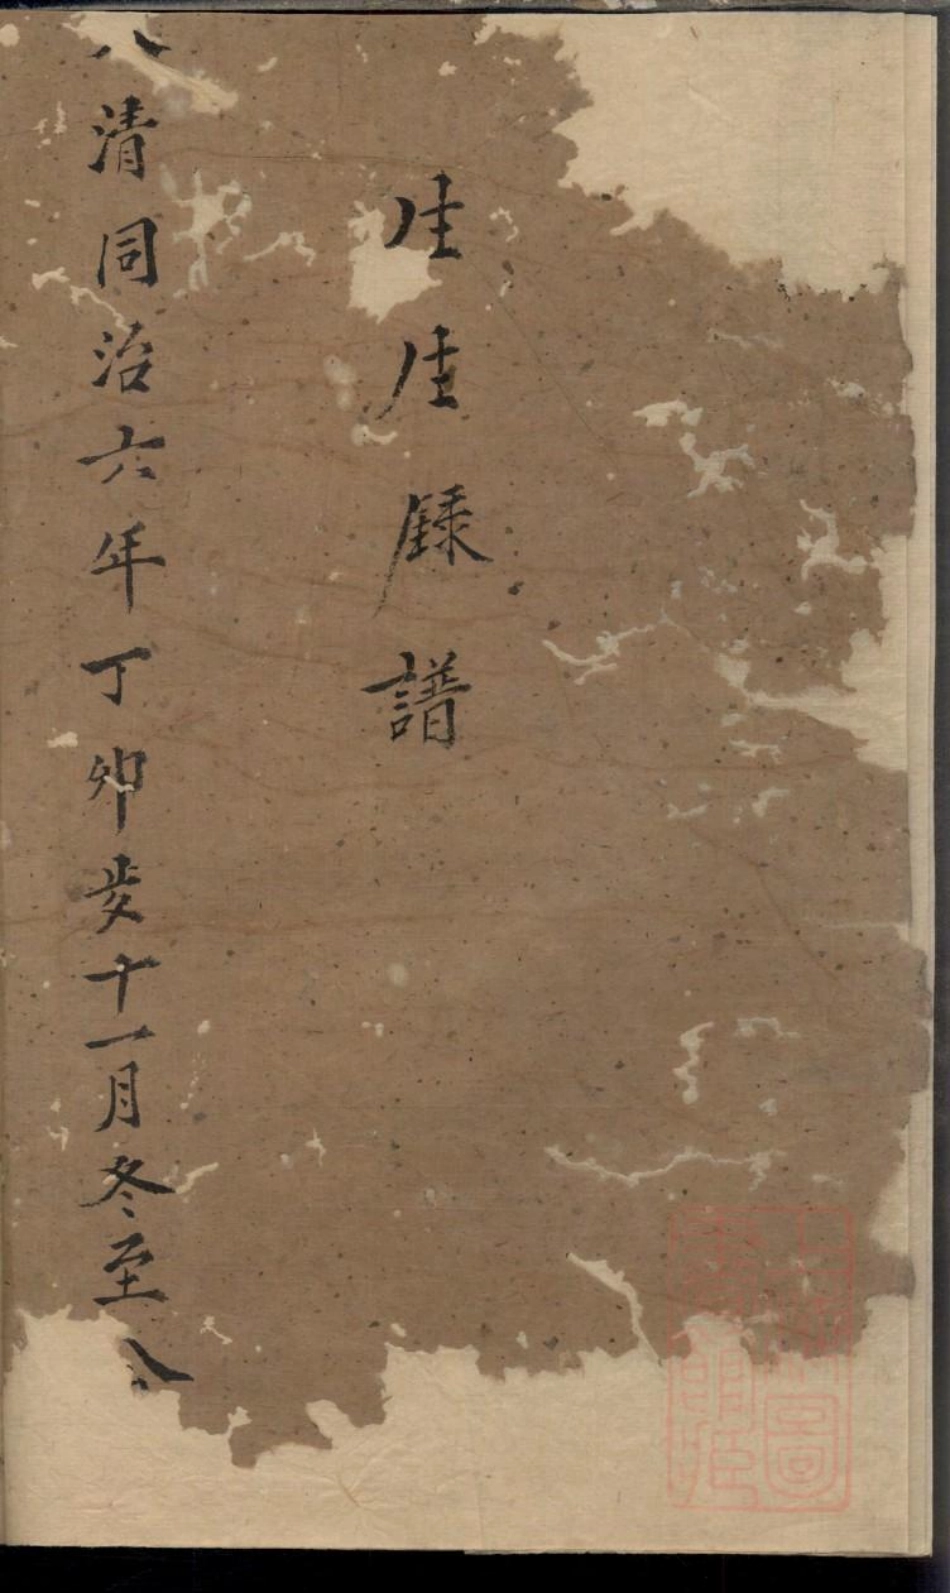 生生錄譜
大清同治六年丁卯歲十一月冬至